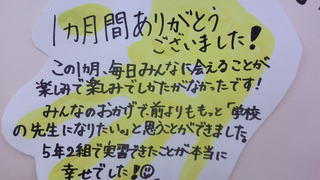 1カ月間ありがとう
ございました!
この1カ月、毎日みんなに会えることが
楽しみで楽しみでしかたがなかったです!
みんなのおかげで、前よりももっと「学校
の先生になりたい。」と思うことができました。
5年2組で実習できたことが本当に
幸せでした!